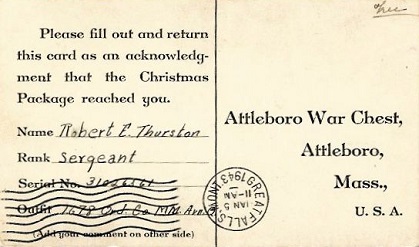 Please fill out and return
this card as an acknowledg-
ment that the Christmas
Package reached you.
Name Robert E. Thurston
Rank Sergeant
Serial No. 31026561
Outfit 1678 Ord. Co. M.M. Avn.
(Add your comment on other side)
free
Attleboro War Chest,
Attleboro,
Mass.,
U. S. A.
GREAT FALLS, MONT.
JAN 5
11-AM
1943